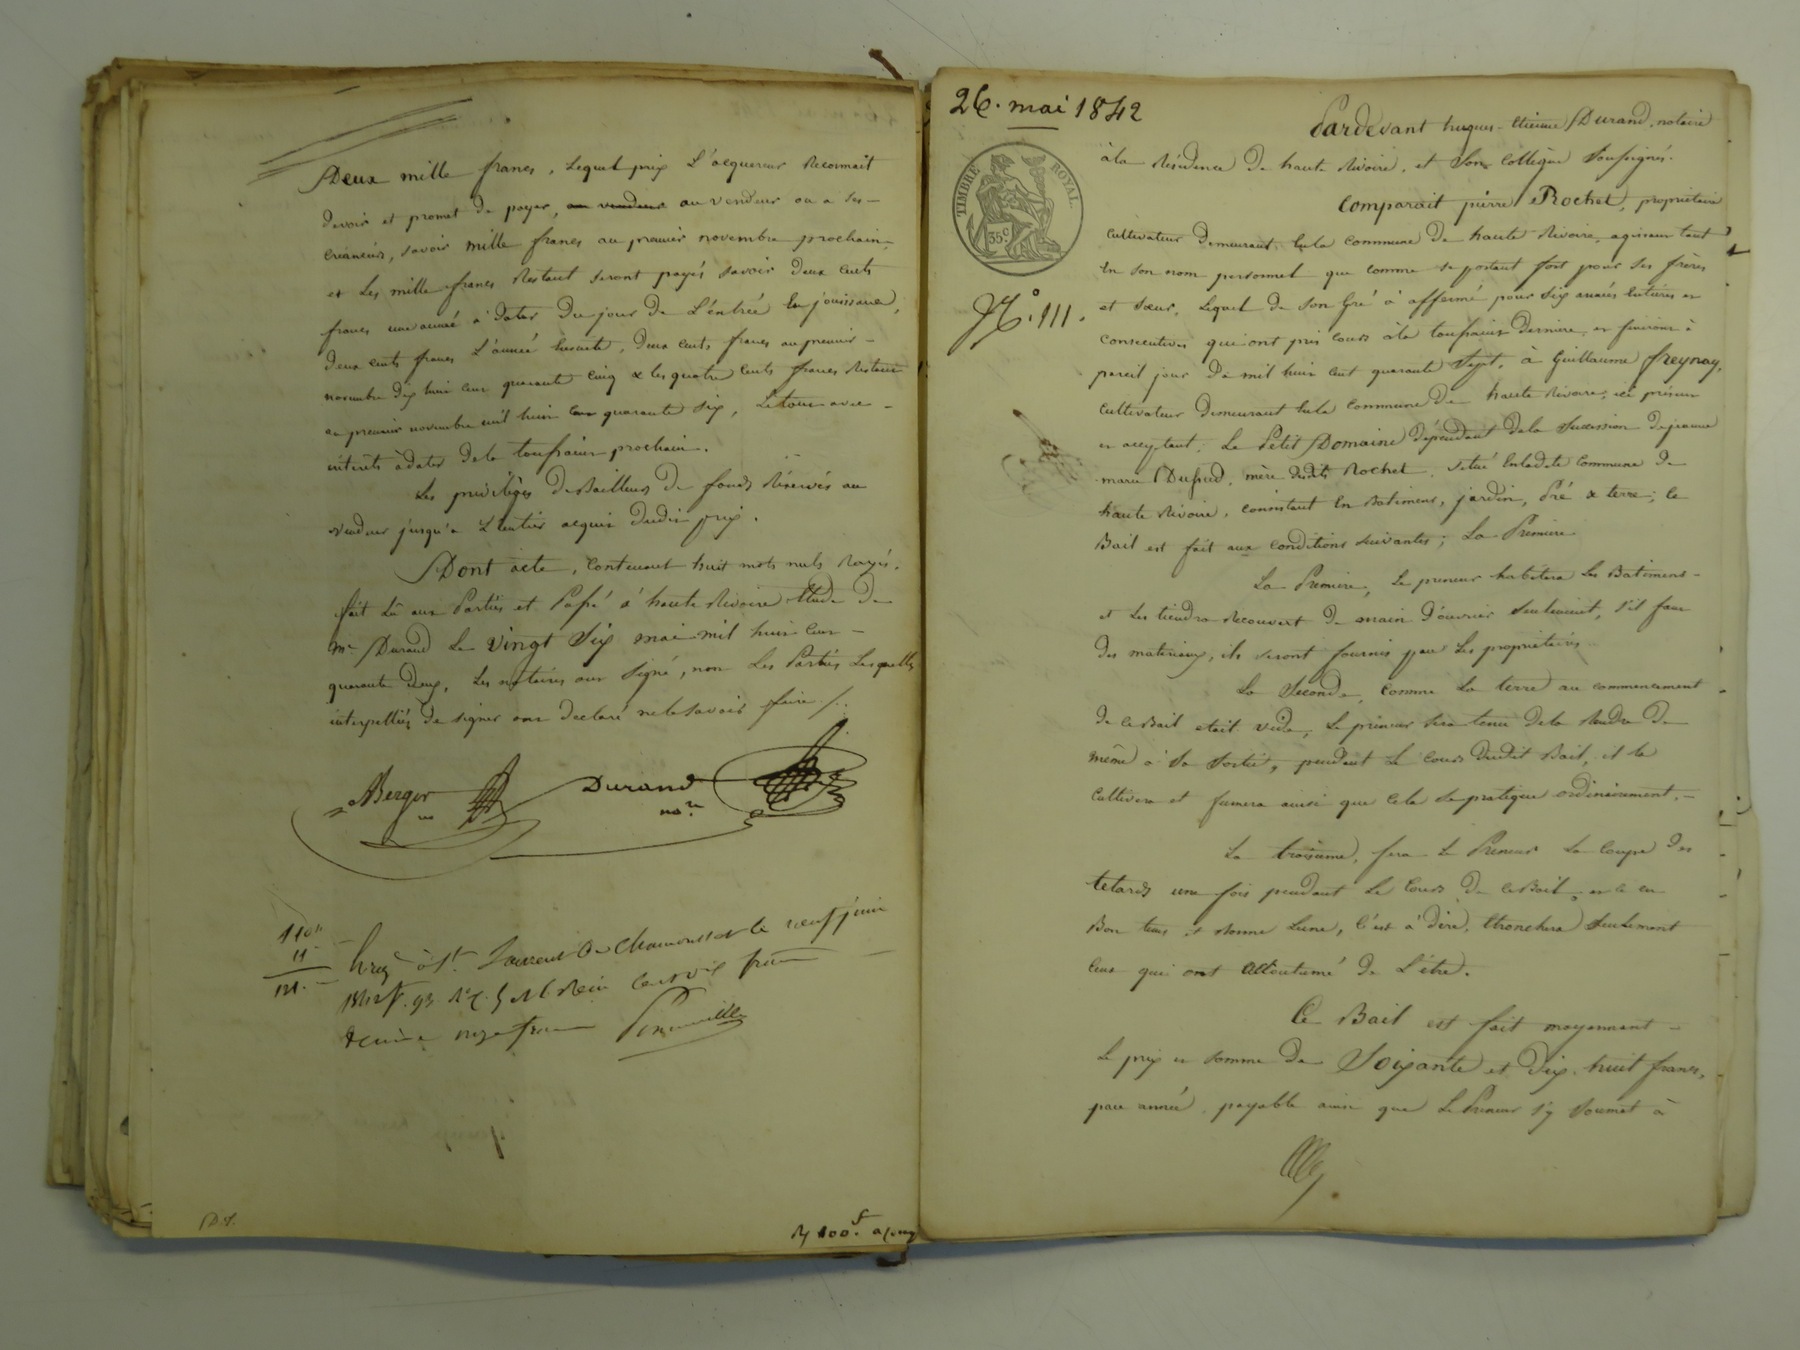 Deux mille francs, lequel prix L'acquereur Reconnait
devoir et promet de payer, au vendeur au vendeur ou a ses
créanciers, savoir mille francs au premier novembre prochain
et Les mille francs Restant seront payés savoir deux cents
francs une année à dater du jour de L'entrée En jouissance,
deux cents francs L'année Ensuite, deux cents francs au premier
novembre dix huit cent quarante cinq & les quatre cents francs Restant
au premier novembre mil huit cent quarante six, Le tout avec
intérêts à dater de la toussaint prochain.
Les privilèges de Bailleur de fonds Réservés au
vendeur jusqu'a L'entier acquit dudit prix.
Dont acte, contenant huit mots nuls Rayés.
fait Lu aux Parties et Passé à haute Rivoire Etude de
Me Durand Le vingt six mai mil huit cent
quarante deux, Les notaires ont signé, non Les Parties Lesquelles
interpellées de signer ont declaré ne le savoir faire /.
Berger
Durand
nore
110"
11
121.
Enregé à St. Laurent De Chamousset le neuf juin
1842 f. 93
26. mai 1842
TIMBRE ROYAL.
35c.
No. 111.
Pardevant hugues-Etienne Durand, notaire
à la Résidence De haute Rivoire, et Son Collègue Soussignés.
Comparait pierre Rochet, propriétaire
cultivateur Demeurant En la Commune De haute Rivoire, agissant tant
En son nom personnel que comme se portant fort pour ses frères
et sœur, Lequel de son Gré à affermé pour six années Entières et
consécutives qui ont pris cours à la toussaint Dernière, et finiront à
pareil jour De mil huit cent quarante Sept, à Guillaume freynay,
cultivateur Demeurant En la Commune De haute Rivoire, ici présent
et acceptant, Le Petit Domaine dépendant de la Succession de jeanne
marie Dussud, mère desdits Rochet, situé En ladite Commune de
haute Rivoire, Consistant En Batiment, jardin, Pré & terre; le
Bail est fait aux conditions suivantes; La Premiere
La Premiere, Le preneur habitera Les Batimens
et Les tiendra Recouvert De main d'ouvrier seulement, s'il faut
des materiaux, ils seront fournis par Les propriétaires.
La Seconde, Comme La terre au commencement
de ce Bail etait vide, Le preneur sera tenu de la Rendre De
même à Sa Sortie, pendant Le Cours dudit Bail, il la
Cultivera et fumera ainsi que Cela Se pratique ordinairement.
La troisieme, fera Le Preneur La Coupe des
tetards une fois pendant Le Cours De ce Bail, et ce en
Bon tems et Bonne Lune, C'est à dire, Etronchera Seulement
Ceux qui ont accoutumé de L'être.
Ce Bail est fait moyennant
Le prix et somme De Soixante et dix huit francs,
par année, payable ainsi que Le Preneur s'y soumet à